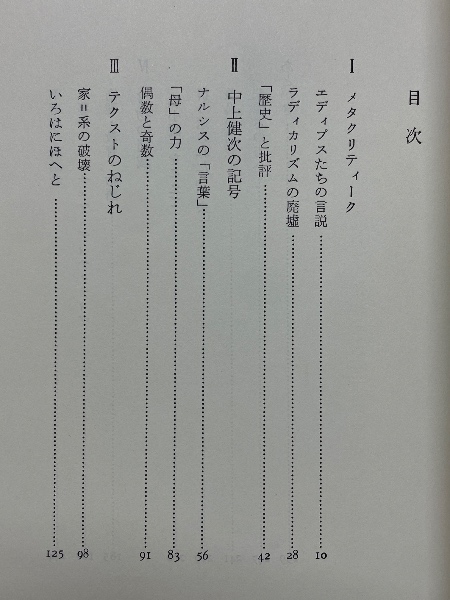 目次
Ⅰ メタクリティーク
エディプスたちの言説……10
ラディカリズムの廃墟……28
「歴史」と批評……42
Ⅱ 中上健次の記号
ナルシスの「言葉」……56
「母」の力……83
偶数と奇数……91
Ⅲ テクストのねじれ
家=系の破壊……98
いろはにほへと……125